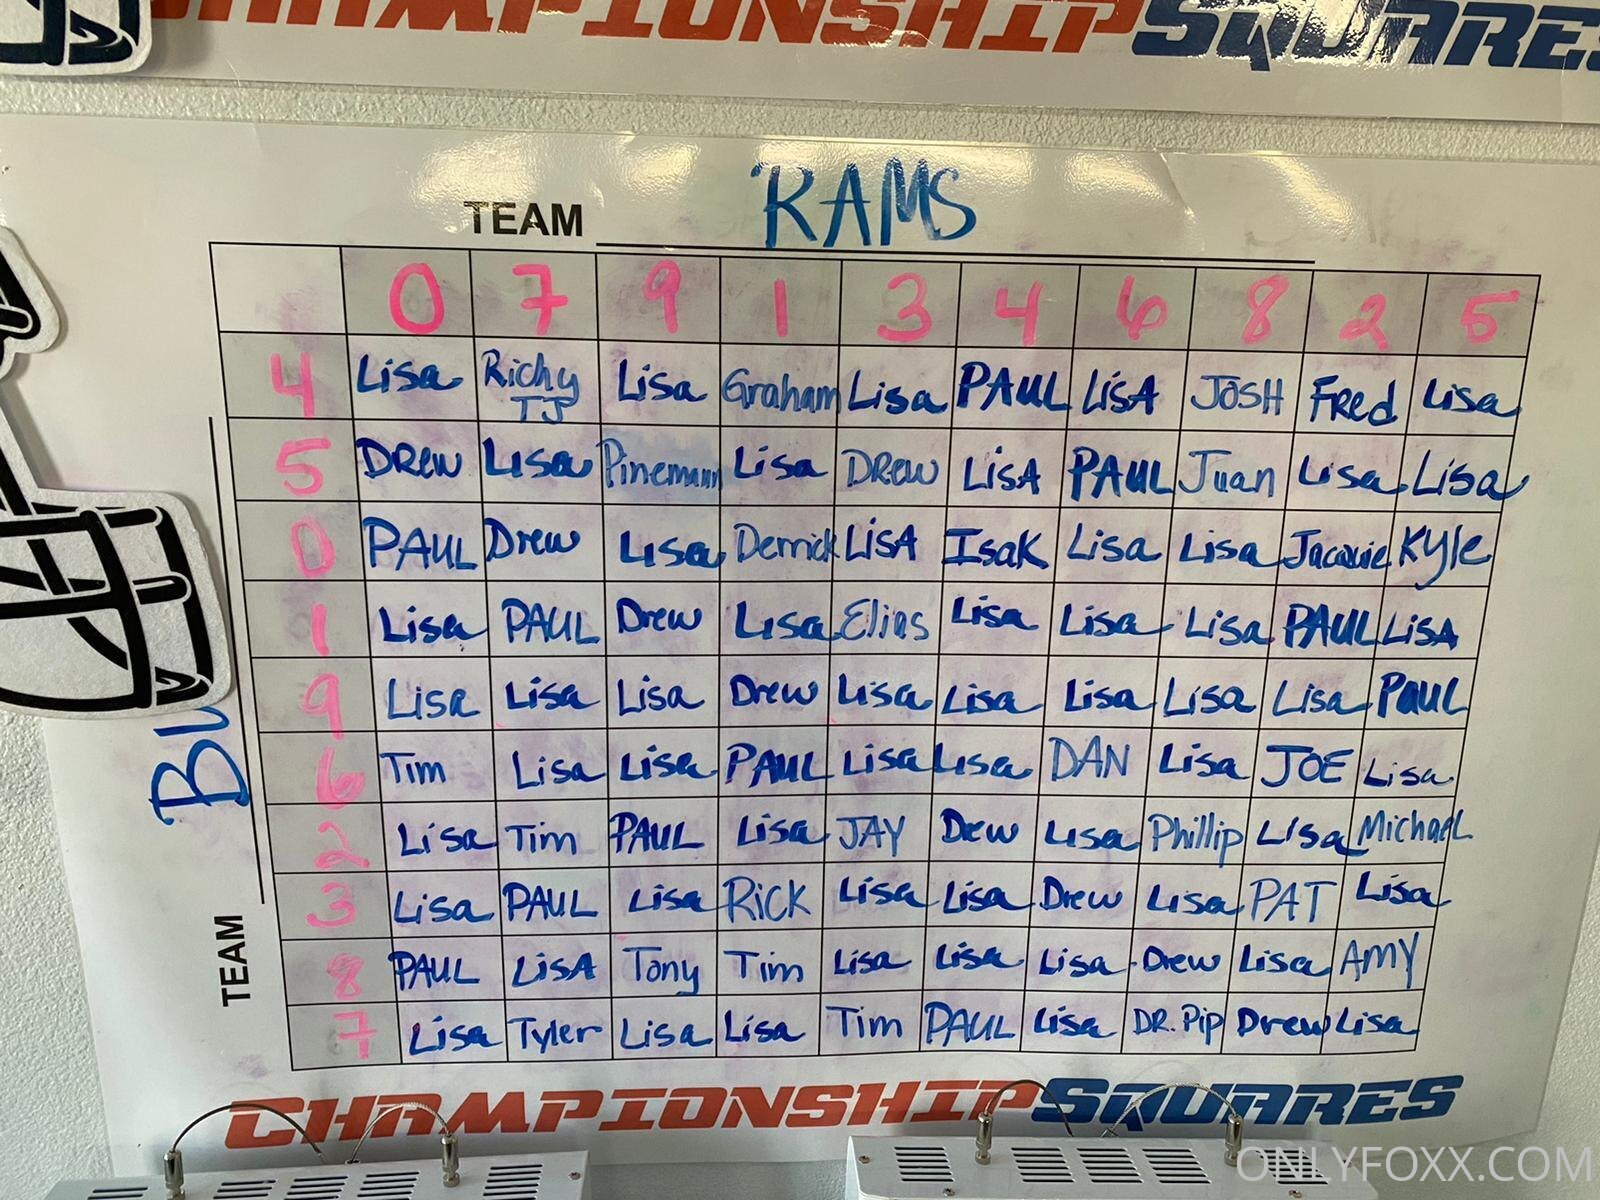 CHAMPIONSHIP SQUARES
TEAM RAMS
0 7 9 1 3 4 6 8 2 5
4 Lisa Richy TJ Lisa Graham Lisa PAUL LISA JOSH FRed Lisa
5 DRew Lisa Pinemann Lisa DREW LISA PAUL Juan Lisa Lisa
0 PAUL Drew Lisa Derrick LISA Isak Lisa Lisa Jacquie Kyle
1 Lisa PAUL Drew Lisa Elias Lisa Lisa Lisa PAUL LISA
9 Lisa Lisa Lisa Drew Lisa Lisa Lisa Lisa Lisa PAUL
6 Tim Lisa Lisa PAUL Lisa Lisa DAN Lisa JOE Lisa
2 Lisa Tim PAUL Lisa JAY Drew Lisa Phillip Lisa Michael
3 Lisa PAUL Lisa RICK Lisa Lisa Drew Lisa PAT Lisa
8 PAUL LISA Tony Tim Lisa Lisa Lisa Drew Lisa AMY
7 Lisa Tyler Lisa Lisa Tim PAUL Lisa DR. Pip Drew Lisa
TEAM
CHAMPIONSHIP SQUARES
ONLYFOXX.COM